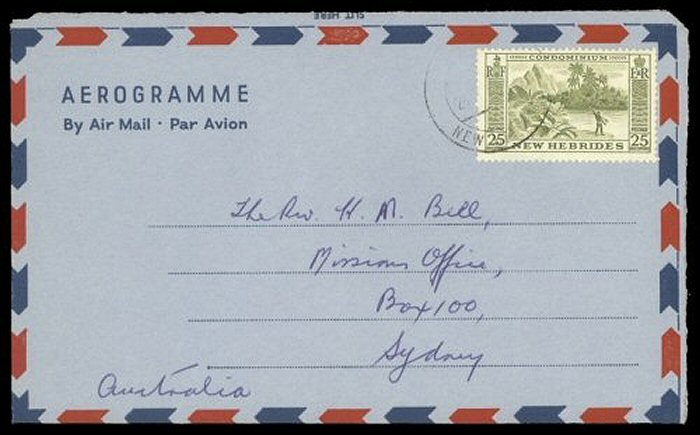 SLIT HERE
AEROGRAMME
By Air Mail · Par Avion
CONDOMINIUM
RF ER
25 NEW HEBRIDES 25
NEW
The Rev. H. M. Bell,
Missions Office,
Box 100,
Sydney
Australia